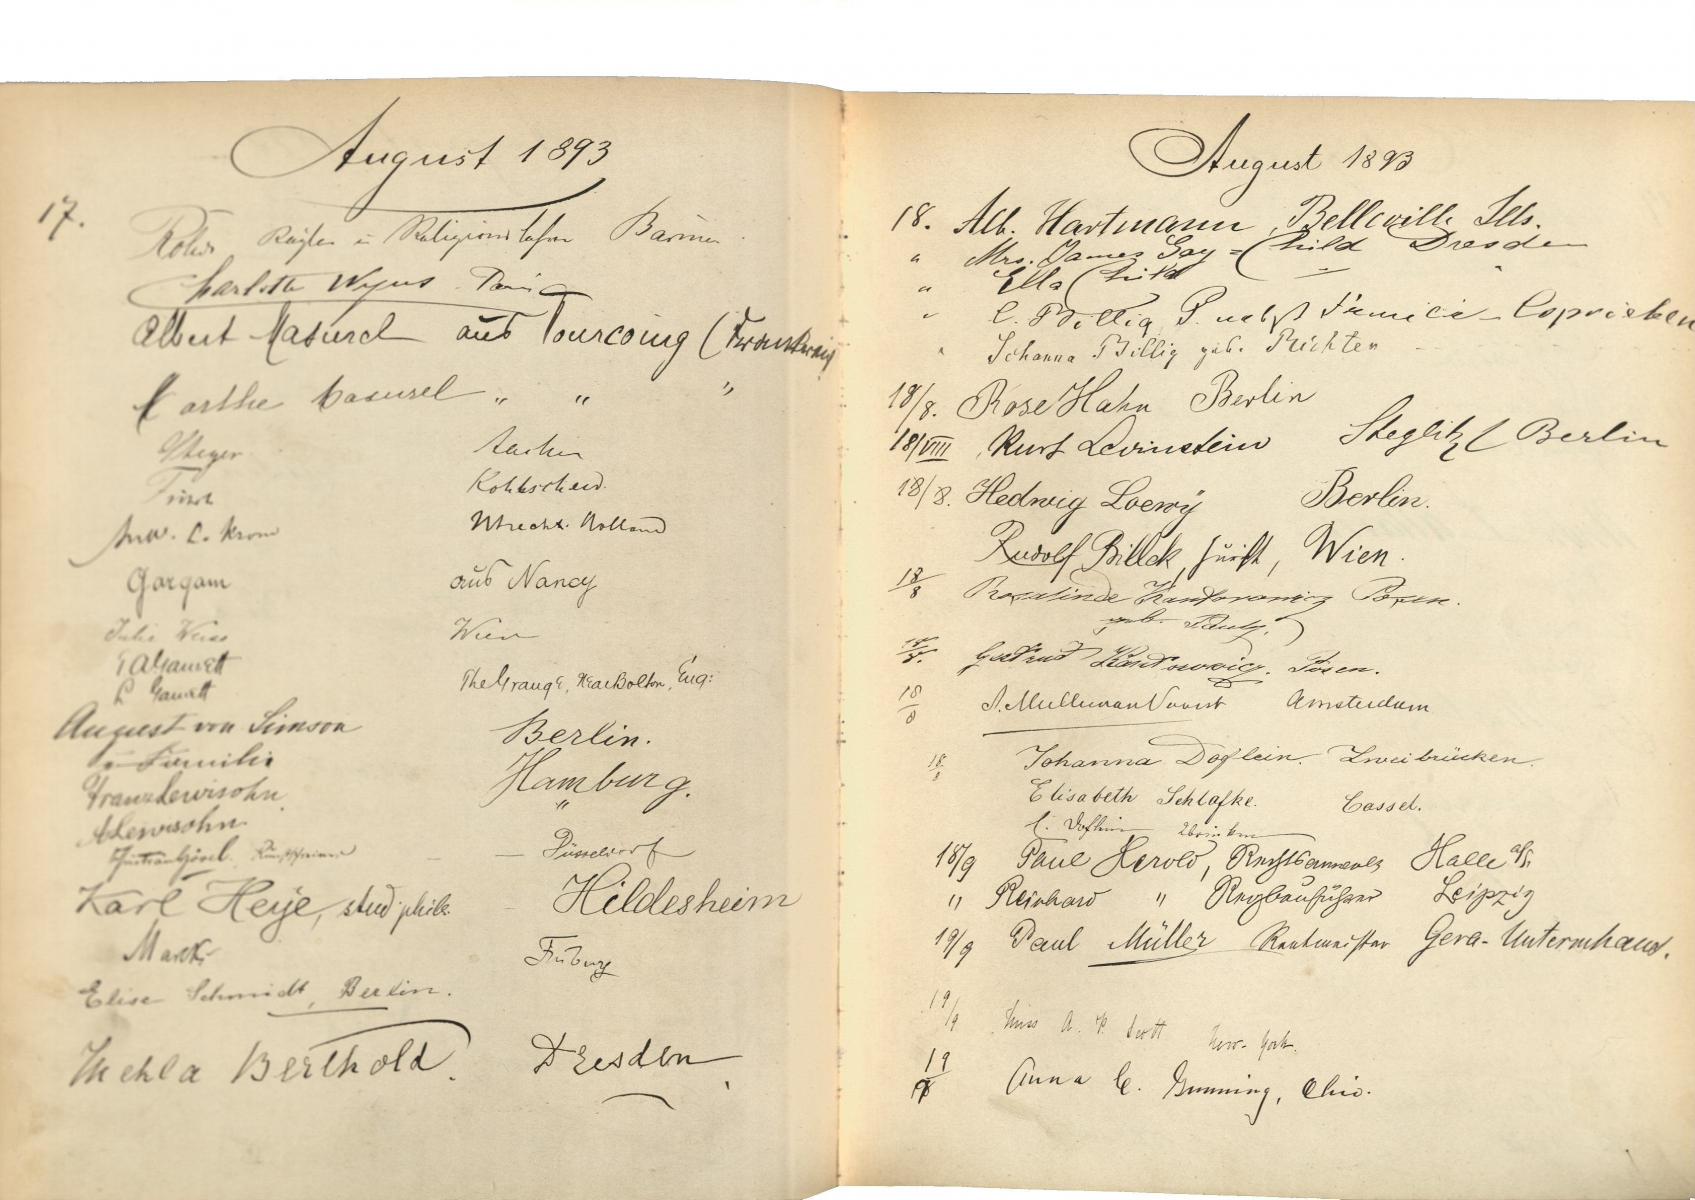 August 1893
17.
Religionslehrer Barmen
Charlotte Wyns Paris
Albert Masurel aus Tourcoing (Frankreich
Marthe Masurel " " "
Steyer Aachen
Kohlscheid.
C. Krom Utrecht. Holland
Gorgam aus Nancy
Julie Weiss Wien
Garnett
Garnett The Grange, Near Bolton, Eng:
August von Simson Berlin.
u Familie
Franz Lewisohn Hamburg.
A Lewisohn. "
— Düsseldorf
Karl Heye, stud. phil. Hildesheim
Marx Freiburg
Elise Schmidt, Berlin.
Thekla Berthold. Dresden
August 1893
18. Alb. Hartmann, Belleville Ills.
" Mrs. James Gay = Child Dresden
" Ella Child "
" C. Billig
" Johanna Billig geb. Richter
18/8. Rose Hahn Berlin
18/VIII Kurt Levinstein Steglitz / Berlin
18/8. Hedwig Loewy Berlin.
Rudolf Bilek, Wien.
18/8 Rosalinde Kantorowicz Posen.
geb. Pauly.
18/8. Gertrud Kantorowicz. Posen.
18/8 Amsterdam
18/8 Johanna Doflein. Zweibrücken.
Elisabeth Schlafke. Cassel.
18/9 Paul Herold, Rechtsanwalt Halle a/S.
" Reinhard " Regbauführer Leipzig
19/9 Paul Müller Rentmeister Gera-Untermhaus.
19/9 Miss A. P. Scott New-York.
19/8 Anna C. Gunning, Ohio.